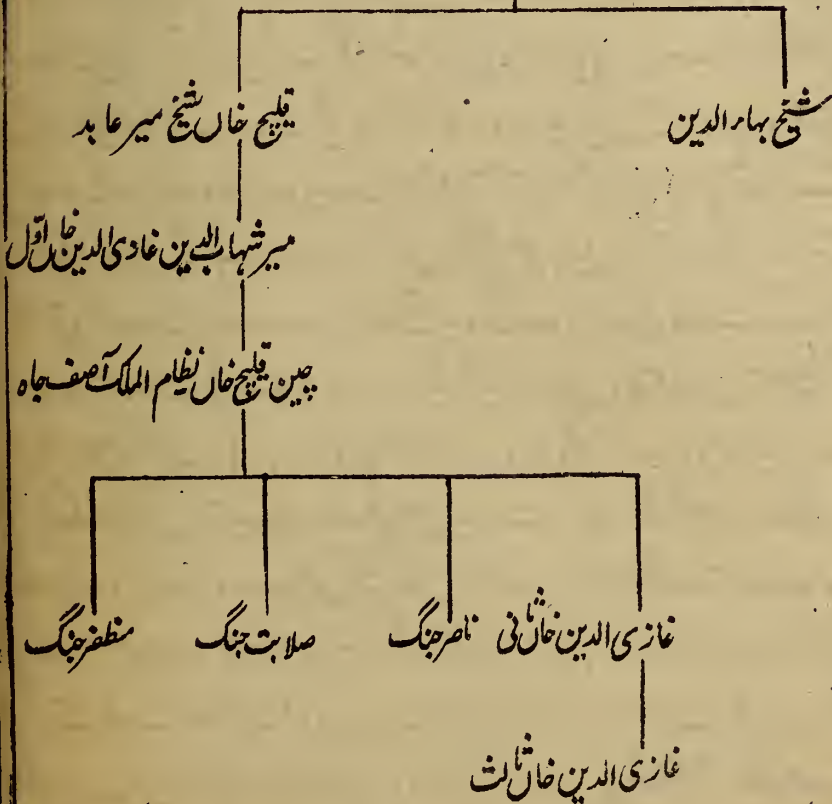 شیخ بہاء الدین
قلیچ خاں شیخ میر عابد
میر شہاب الدین غازی الدین خاں اوّل
چین قلیچ خاں نظام الملک آصف جاہ
غازی الدین خاں ثانی
ناصر جنگ
صلابت جنگ
مظفر جنگ
غازی الدین خاں ثالث